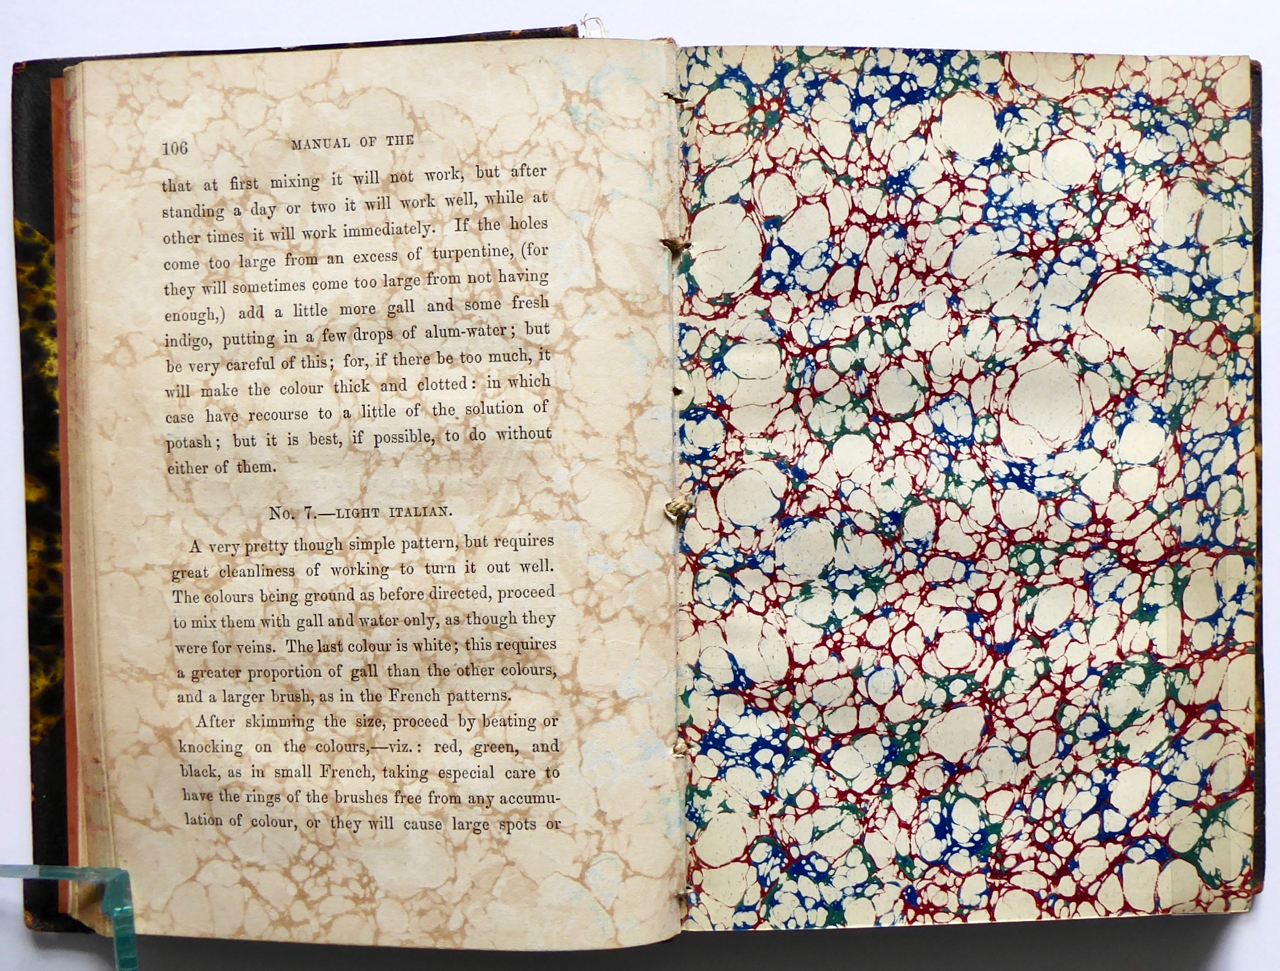 106 MANUAL OF THE
that at first mixing it will not work, but after
standing a day or two it will work well, while at
other times it will work immediately. If the holes
come too large from an excess of turpentine, (for
they will sometimes come too large from not having
enough,) add a little more gall and some fresh
indigo, putting in a few drops of alum-water; but
be very careful of this; for, if there be too much, it
will make the colour thick and clotted: in which
case have recourse to a little of the solution of
potash; but it is best, if possible, to do without
either of them.
No. 7.—LIGHT ITALIAN.
A very pretty though simple pattern, but requires
great cleanliness of working to turn it out well.
The colours being ground as before directed, proceed
to mix them with gall and water only, as though they
were for veins. The last colour is white; this requires
a greater proportion of gall than the other colours,
and a larger brush, as in the French patterns.
After skimming the size, proceed by beating or
knocking on the colours,—viz.: red, green, and
black, as in small French, taking especial care to
have the rings of the brushes free from any accumu-
lation of colour, or they will cause large spots or